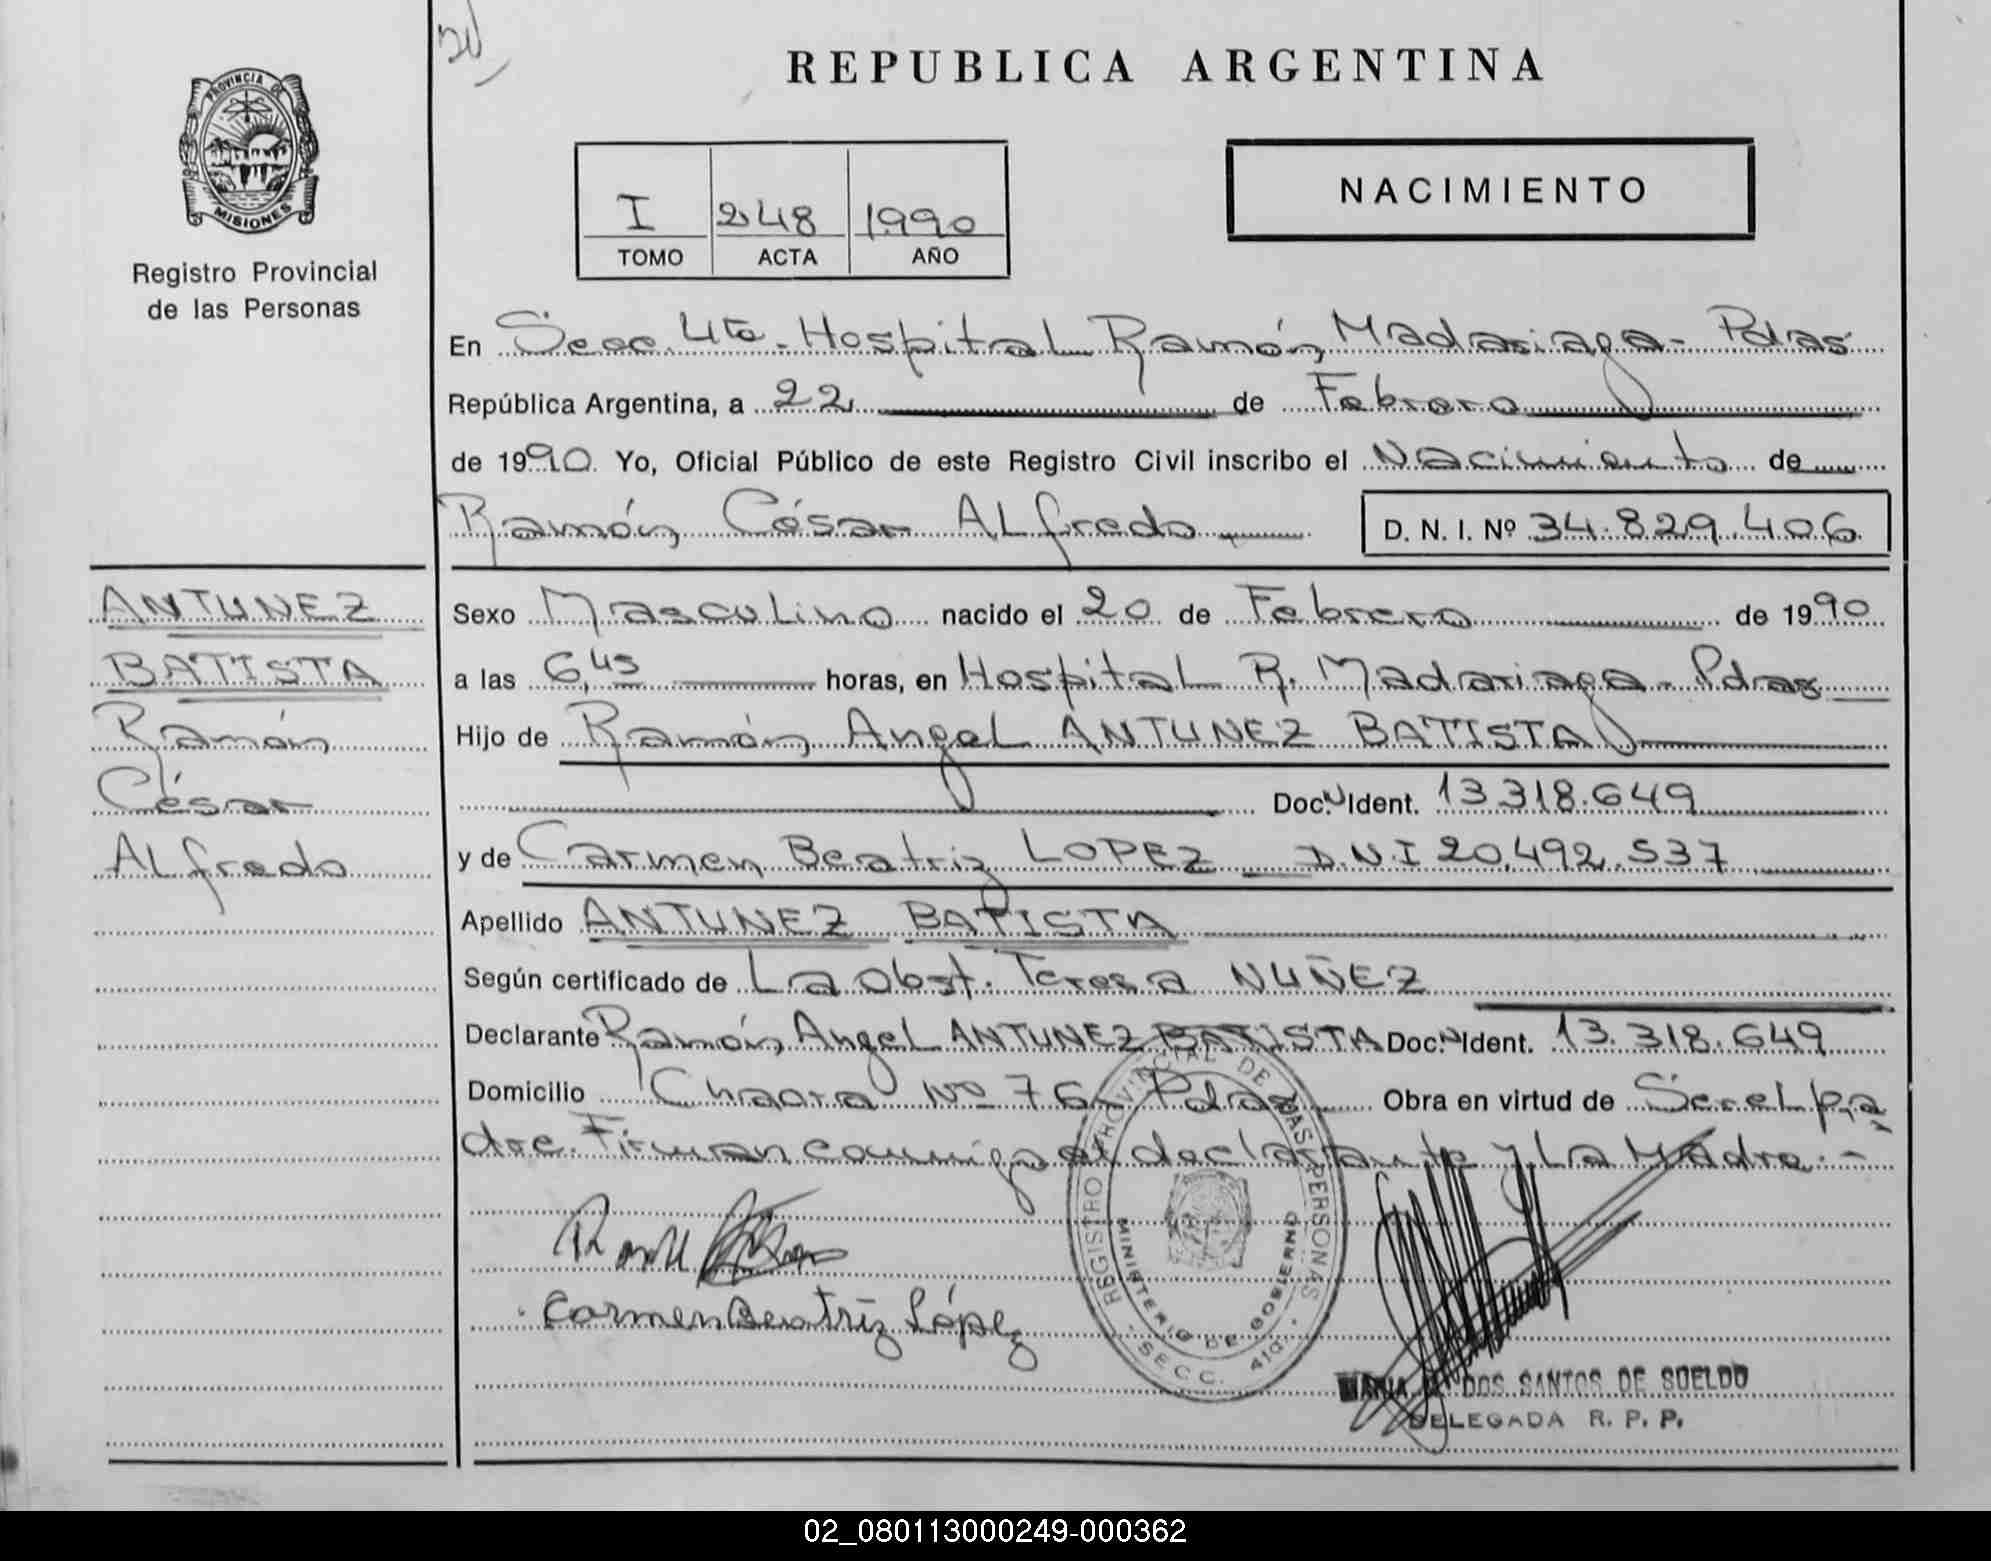 REPUBLICA ARGENTINA
PROVINCIA DE
MISIONES
Registro Provincial
de las Personas
I 248 1990
TOMO ACTA AÑO
NACIMIENTO
En Secc 4ta. Hospital Ramón Madariaga - Pdas
República Argentina, a 22 de Febrero
de 1990. Yo, Oficial Público de este Registro Civil inscribo el Nacimiento de
Ramón César ALfredo D. N. I. Nº 34.829.406
ANTUNEZ
BATISTA
Ramón
César
ALfredo
Sexo Masculino nacido el 20 de Febrero de 1990
a las 6,45 horas, en Hospital R. Madariaga - Pdas
Hijo de Ramón Angel ANTUNEZ BATISTA
Doc. Ident. 13318.649
y de Carmen Beatriz LOPEZ D.N.I 20.492.537
Apellido ANTUNEZ BATISTA
Según certificado de La Obst. Teresa NUÑEZ
Declarante Ramón Angel ANTUNEZ BATISTA Doc. Ident. 13.318.649
Domicilio Chacra Nº 76 - Pdas Obra en virtud de Ser el pa
dre. Firman conmigo el declarante y La Madre. -
Carmen Beatríz López
REGISTRO PROVINCIAL DE LAS PERSONAS
MINISTERIO DE GOBIERNO
SECC. 4ta.
MARIA DOS SANTOS DE SUELDO
DELEGADA R. P. P.
02_080113000249-000362